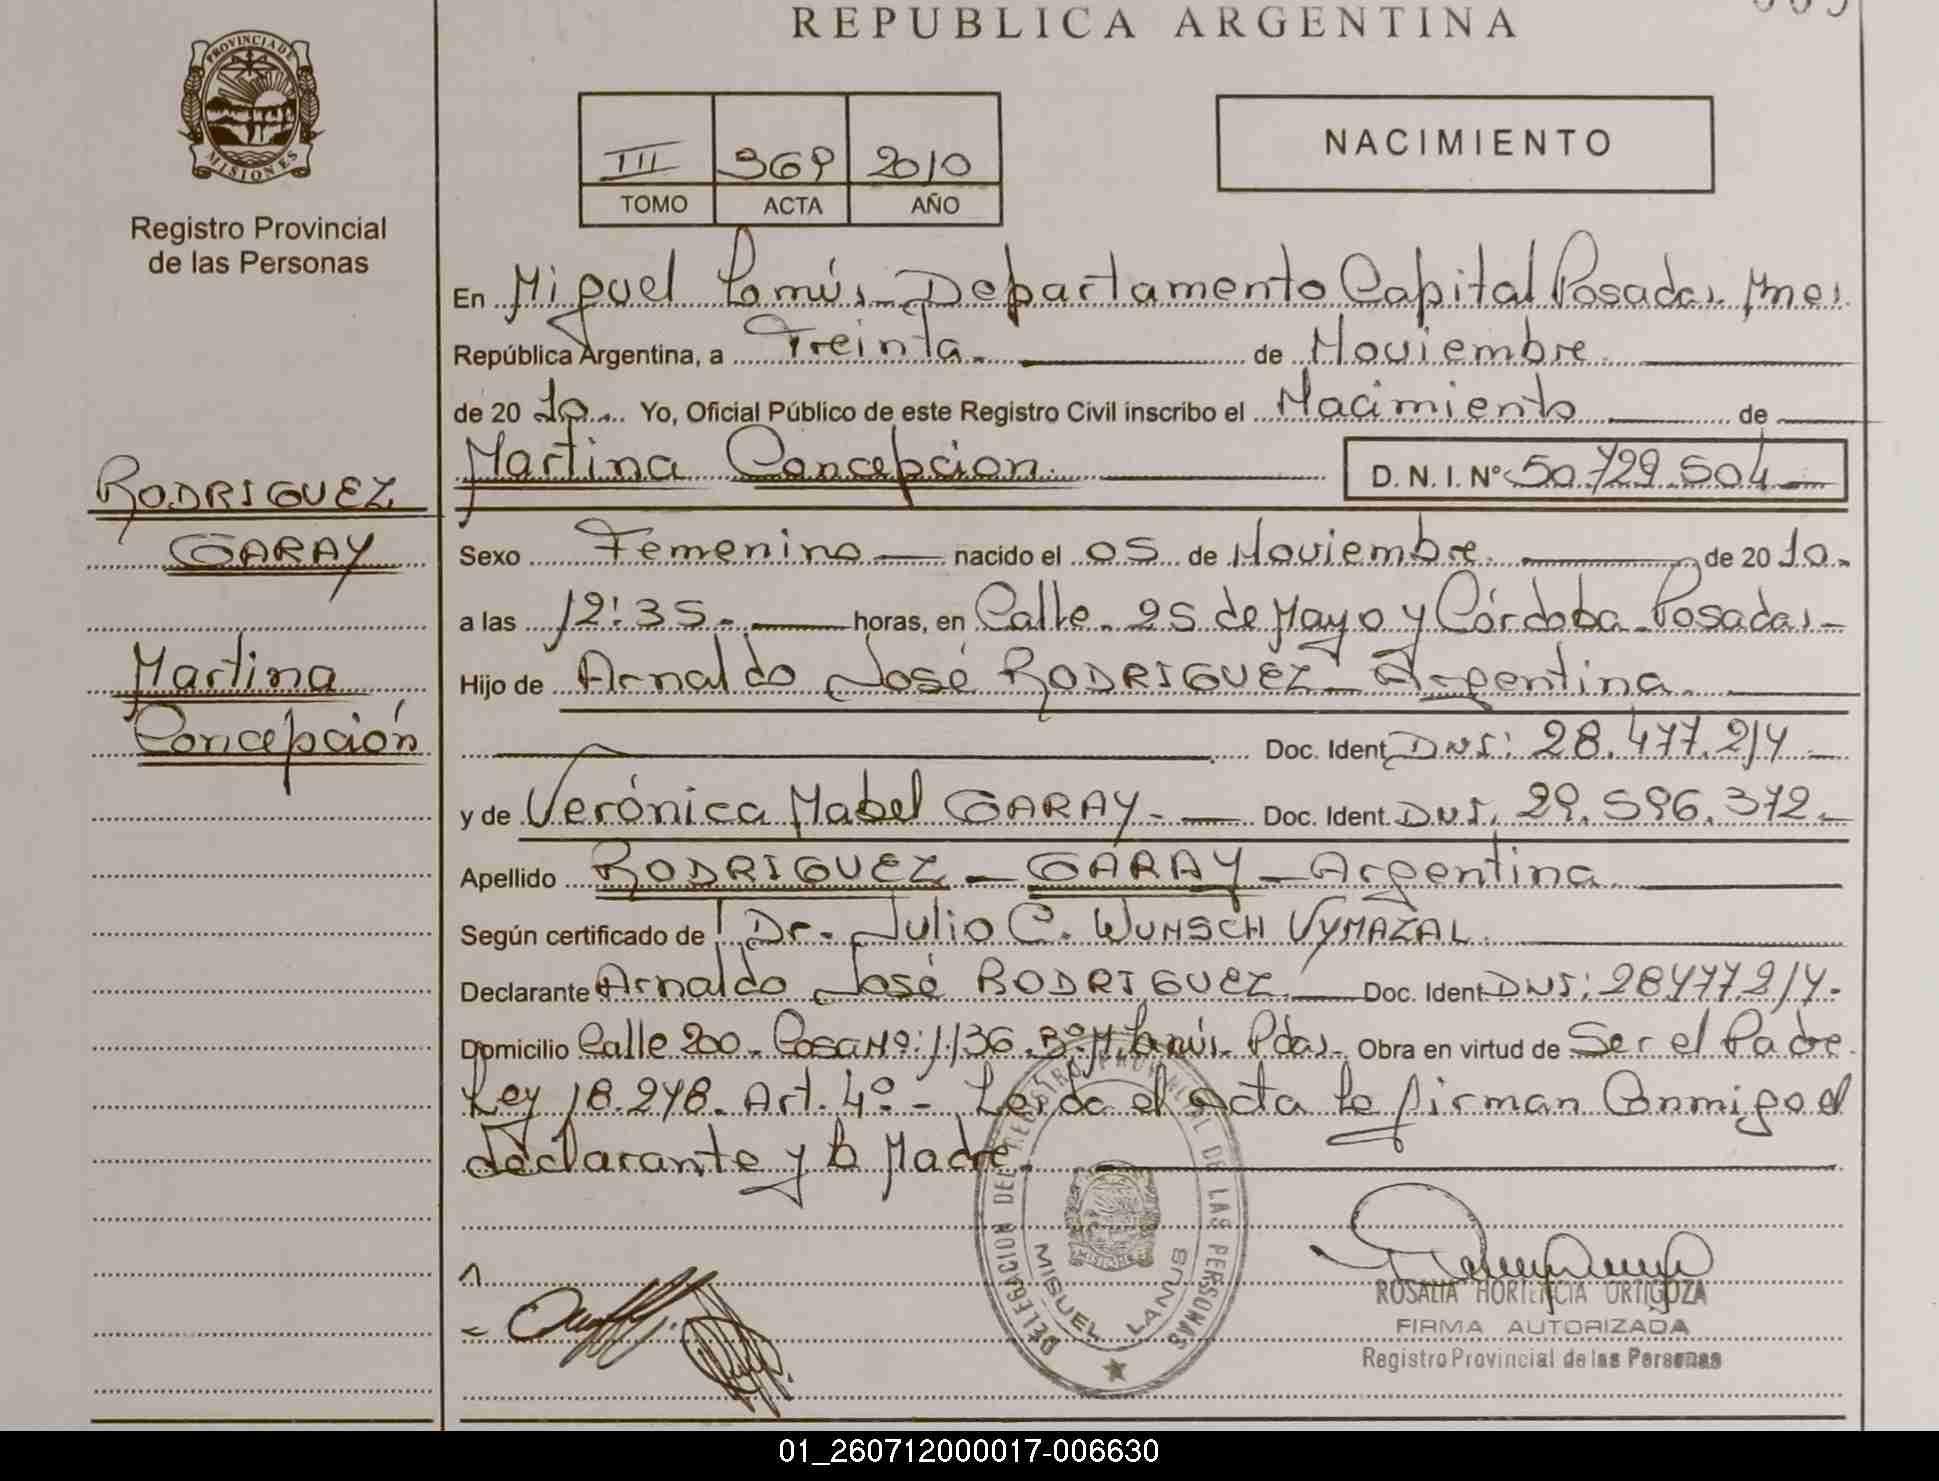 REPUBLICA ARGENTINA
PROVINCIA DE
MISIONES
Registro Provincial
de las Personas
III 369 2010
TOMO ACTA AÑO
NACIMIENTO
En Miguel Lanús - Departamento Capital Posadas Mnes.
República Argentina, a Treinta. de Noviembre.
de 20 10 Yo, Oficial Público de este Registro Civil inscribo el Nacimiento de
Martina Concepcion. D. N. I. Nº 50.729.504
RODRIGUEZ
GARAY
Martina
Concepción
Sexo Femenino nacido el 05 de Noviembre. de 20 10.
a las 12:35. horas, en Calle. 25 de Mayo y Córdoba - Posadas -
Hijo de Arnaldo José RODRIGUEZ - Argentina.
Doc. Ident. DNI: 28.477.214
y de Verónica Mabel GARAY. Doc. Ident. DNI. 29.596.372.
Apellido RODRIGUEZ - GARAY - Argentina
Según certificado de Dr. Julio C. WUNSCH VYMAZAL.
Declarante Arnaldo José RODRIGUEZ. Doc. Ident. DNI: 28477.214.
Domicilio Calle 200. Casa Nº: 1136. Bº. M. Lanús. Pdas. Obra en virtud de Ser el Padre.
Ley 18.248. Art. 4º. - Leida el acta la firman Conmigo el
declarante y la Madre.
DELEGACION DEL REGISTRO PROVINCIAL DE LAS PERSONAS
MISIONES
MIGUEL LANUS
ROSALIA HORTENCIA ORTIGOZA
FIRMA AUTORIZADA
Registro Provincial de las Personas
01_260712000017-006630